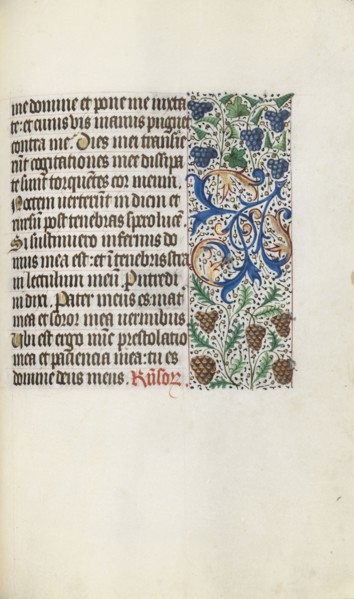 me domine et pone me iuxta
te: et cuius vis manus pugnet
contra me. Dies mei transie
rūt cogitationes mee dissipa
te sunt torquētes cor meum.
Noctem uerterūt in diem et
rursū post tenebras spero lucē.
Si sustinuero infernus do
mus mea est: et ī tenebris stra
ui lectulum meū. Putredi
ni dixi. Pater meus es: mat
mea et soror mea uermibus
Ubi est ergo nūc prestolatio
mea et paciencia mea: tu es
domine deus meus.